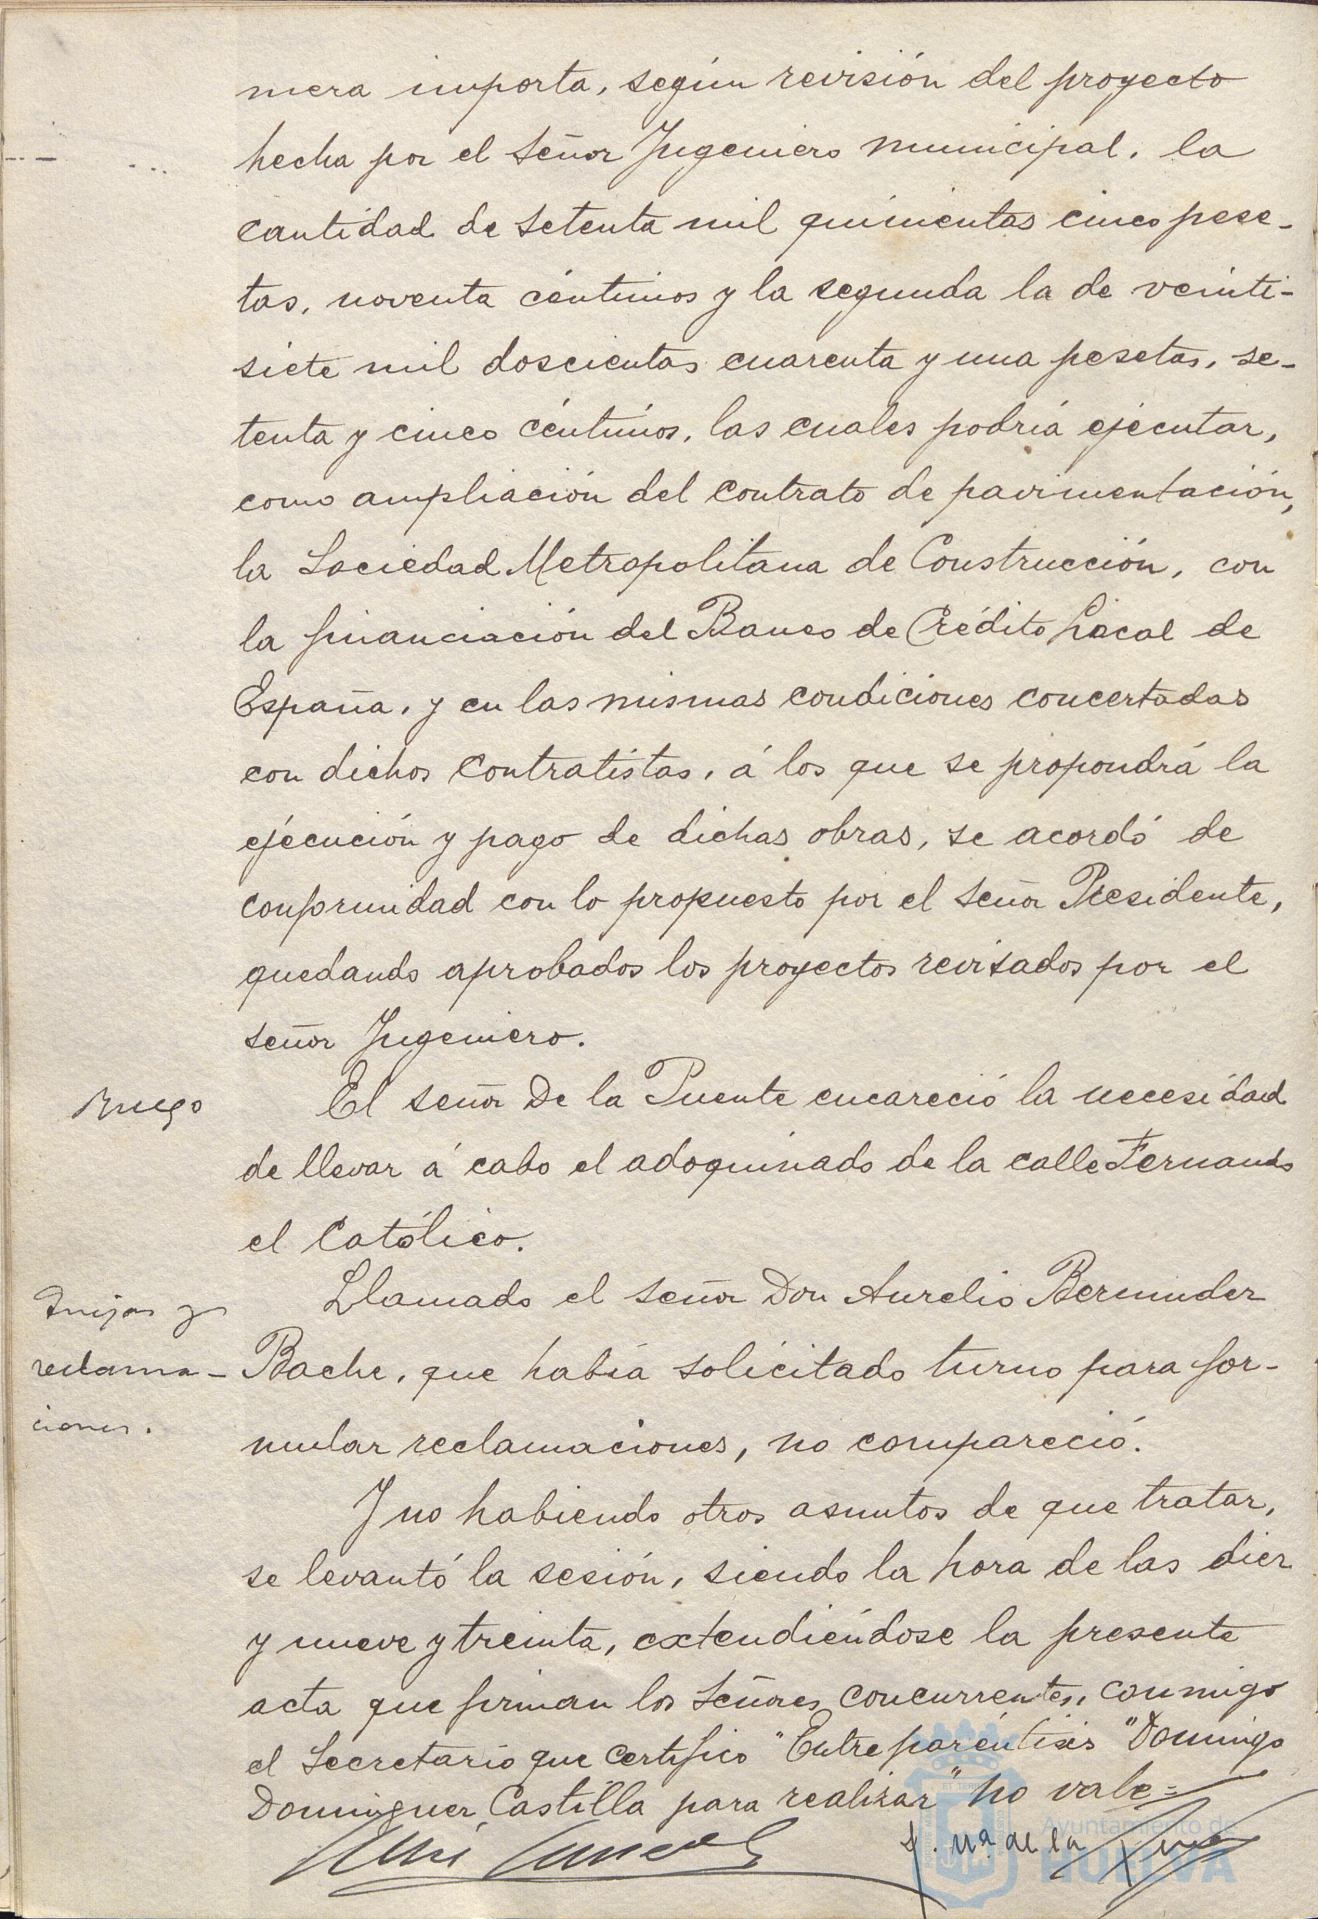 mera importa, según revisión del proyecto
hecha por el Señor Ingeniero municipal, la
cantidad de setenta mil quinientas cinco pese-
tas, noventa céntimos y la segunda la de veinti-
siete mil doscientas cuarenta y una pesetas, se-
tenta y cinco céntimos, las cuales podría ejecutar,
como ampliación del contrato de pavimentación,
la Sociedad Metropolitana de Construcción, con
la financiación del Banco de Crédito Local de
España, y en las mismas condiciones concertadas
con dichos contratistas, á los que se propondrá la
ejecución y pago de dichas obras, se acordó de
conformidad con lo propuesto por el señor Presidente,
quedando aprobados los proyectos revisados por el
señor Ingeniero.
Ruego
El señor De la Puente encareció la necesidad
de llevar á cabo el adoquinado de la calle Fernando
el Católico.
Quejas y
reclama-
ciones.
Llamado el señor Don Aurelio Bermudez
Bache, que había solicitado turno para for-
mular reclamaciones, no compareció.
Y no habiendo otros asuntos de que tratar,
se levantó la sesión, siendo la hora de las diez
y nueve y treinta, extendiéndose la presente
acta que firman los Señores concurrentes, conmigo
el Secretario que certifico "Entre paréntisis "Domingo
Dominguez Castilla para realizar" no vale=
J. Mª de la
Ayuntamiento de
HUELVA